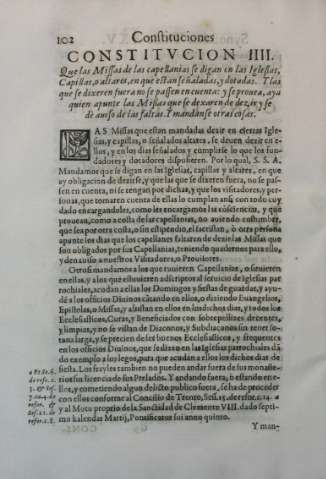 102 Constituciones
CONSTITVCION IIII.
Que las Missas de las capellanias se digan en las Iglesias,
Capillas, o altares, en que estan señaladas, y dotadas. Y las
que se dixeren fuera no se passen en cuenta: y se provea, aya
quien apunte las Missas que se dexaren de dezir, y se
dè auiso de las faltas. Y mandanse otras cosas.
LAS Missas que estan mandadas dezir en ciertas Igle-
sias, y capillas, o señalados altares, se deuen dezir en e-
llos, y en los dias señalados y cumplirse lo que los fun-
dadores y dotadores dispusieren. Por lo qual, S. S. A.
Mandamos que se digan en las Iglesias, capillas y altares, en que
ay obligacion de dezirse, y que las que se dixeren fuera, no se pas-
sen en cuenta, ni se tengan por dichas, y que los visitadores, y per-
sonas, que tomaren cuenta de ellas lo cumplan assi, con todo cuy
dado encargandoles, como les encargamos las consciencias, y que
prouean, como a costa de las capellanias, no auiendo costumbre,
que sea por otra costa, o sin estipendio, el sacristan, o otra persona
apunte los dias que los capellanes faltaren de dezir las Missas que
son obligados por sus Capellanias, teniendo quaderno para ello,
y den auiso a nuestros Visitadores, o Prouisores.
Otrosi mandamos a los que tuuieren Capellanias, o siruieren
en ellas, y a los que estuuieren adscriptos al seruicio de Iglesias par
rochiales, acudan a ellas los Domingos y fiestas de guardar, y ayu-
dē a los officios Diuinos cãtando en ellos, o diziendo Euangelios,
Epistolas, o Missas, y assistan en ellos en los dichos dias, y todos los
Ecclesiasticos, Curas, y Beneficiados con sobrepellizes decentes,
y limpias, y no se vistan de Diaconos, y Subdiaconos sin tener so-
tana larga, y se precien de los buenos Ecclesiasticos, y frequenten
en los officios Diuinos, que se dizen en las Iglesias parrochiales dã
do exemplo a los legos, para que acudan a ellos los dichos dias de
fiesta. Los frayles tambien no pueden andar fuera de sus monaste-
rios sin licencia de sus Prelados. Y andando fuera, o estando en e-
llos, y cometiendo algun delicto publico fuera, se ha de proceder
con ellos conforme al Concilio de Trento, Sess. 25. de refor. c. 14.
y al Motu proprio de la Sanctidad de Clemente VIII. dado septi-
mo kalendas Martij, Pontificatus sui anno quinto.
Y man-